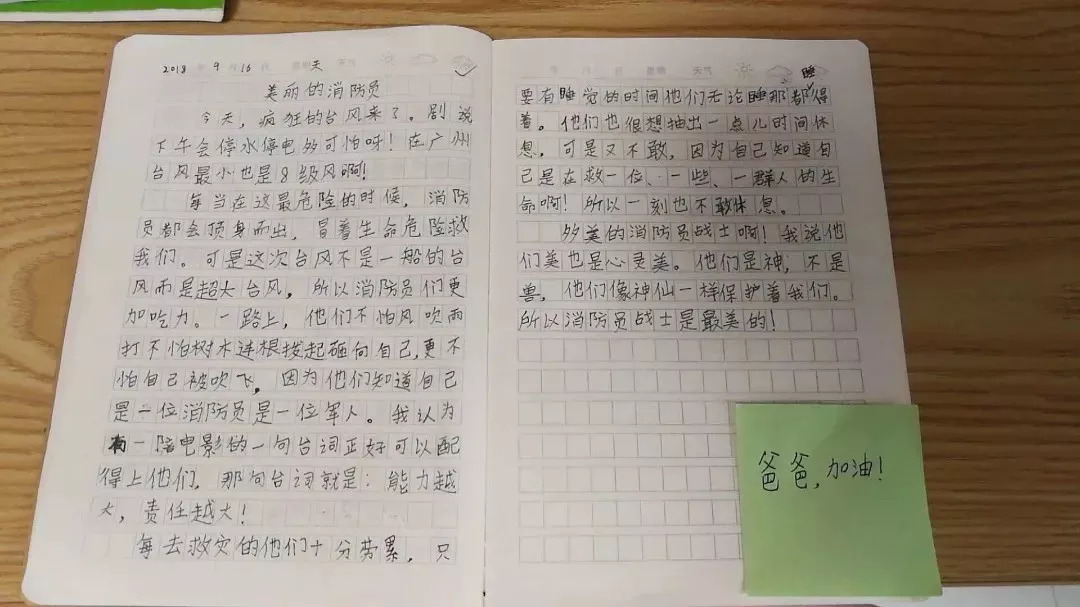 2018年9月16日 星期天 天气
美丽的消防员
今天，疯狂的台风来了。剧说
下午会停水停电多可怕呀！在广州
台风最小也是8级风啊！
每当在这最危险的时候，消防
员都会顶身而出，冒着生命危险救
我们。可是这次台风不是一般的台
风而是超大台风，所以消防员们更
加吃力。一路上，他们不怕风吹雨
打不怕树木连根拔起砸向自己，更不
怕自己被吹飞，因为他们知道自己
是一位消防员是一位军人。我认为
有一陪电影的一句台词正好可以配
得上他们，那句台词就是：能力越
大，责任越大！
每去救灾的他们十分劳累，只
年 月 日 星期 天气
睡
要有睡觉的时间他们无论睡那都得
着。他们也很想抽出一点儿时间休
息，可是又不敢，因为自己知道自
己是在救一位、一些、一群人的生
命啊！所以一刻也不敢休息。
多美的消防员战士啊！我说他
们美也是心灵美。他们是神，不是
兽，他们像神仙一样保护着我们。
所以消防员战士是最美的！
爸爸，加油！